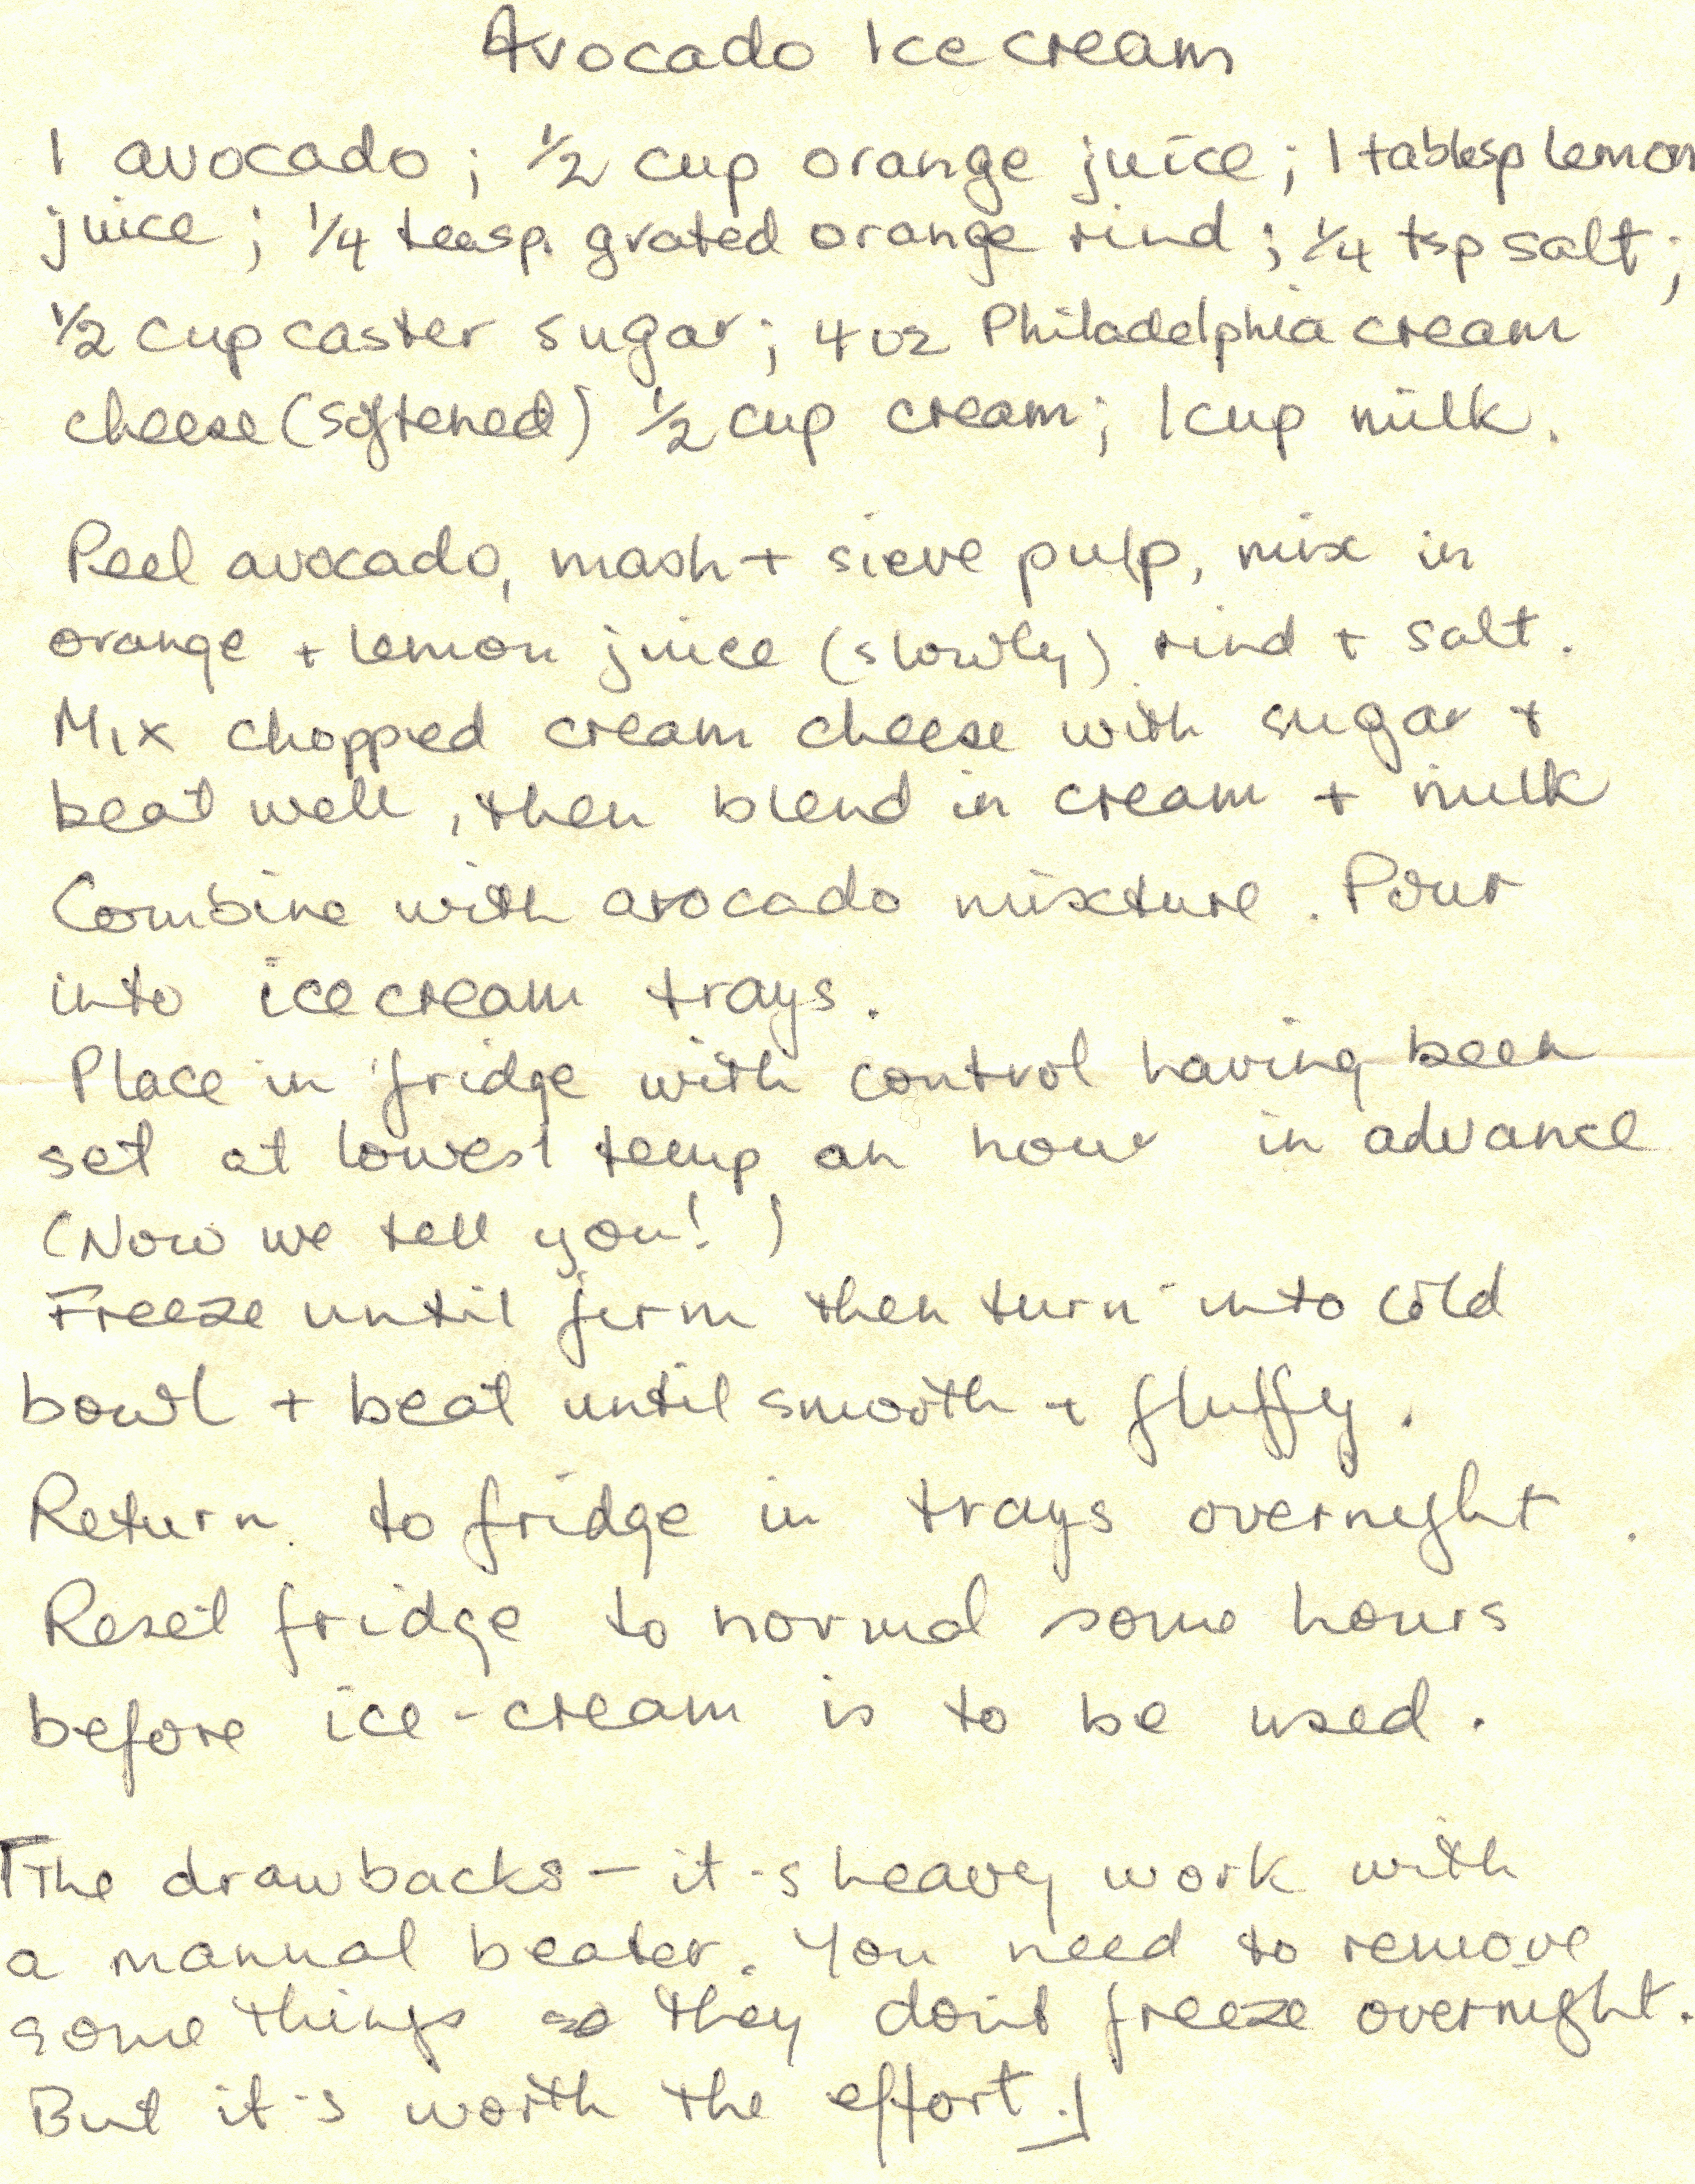 Avocado Ice cream
1 avocado ; 1/2 cup orange juice ; 1 tablesp lemon
juice ; 1/4 teasp. grated orange rind ; 1/4 tsp salt ;
1/2 cup caster sugar ; 4 oz Philadelphia cream
cheese (softened) 1/2 cup cream ; 1 cup milk .
Peel avocado, mash + sieve pulp, mix in
orange + lemon juice (slowly) rind + salt .
Mix chopped cream cheese with sugar +
beat well , then blend in cream + milk
Combine with avocado mixture . Pour
into icecream trays .
Place in 'fridge with control having been
set at lowest temp an hour in advance
(Now we tell you! )
Freeze until firm then turn into cold
bowl + beat until smooth + fluffy .
Return to fridge in trays overnight .
Reset fridge to normal some hours
before ice-cream is to be used .
[The drawbacks - it's heavy work with
a manual beater. You need to remove
some things so they don't freeze overnight.
But it's worth the effort.]